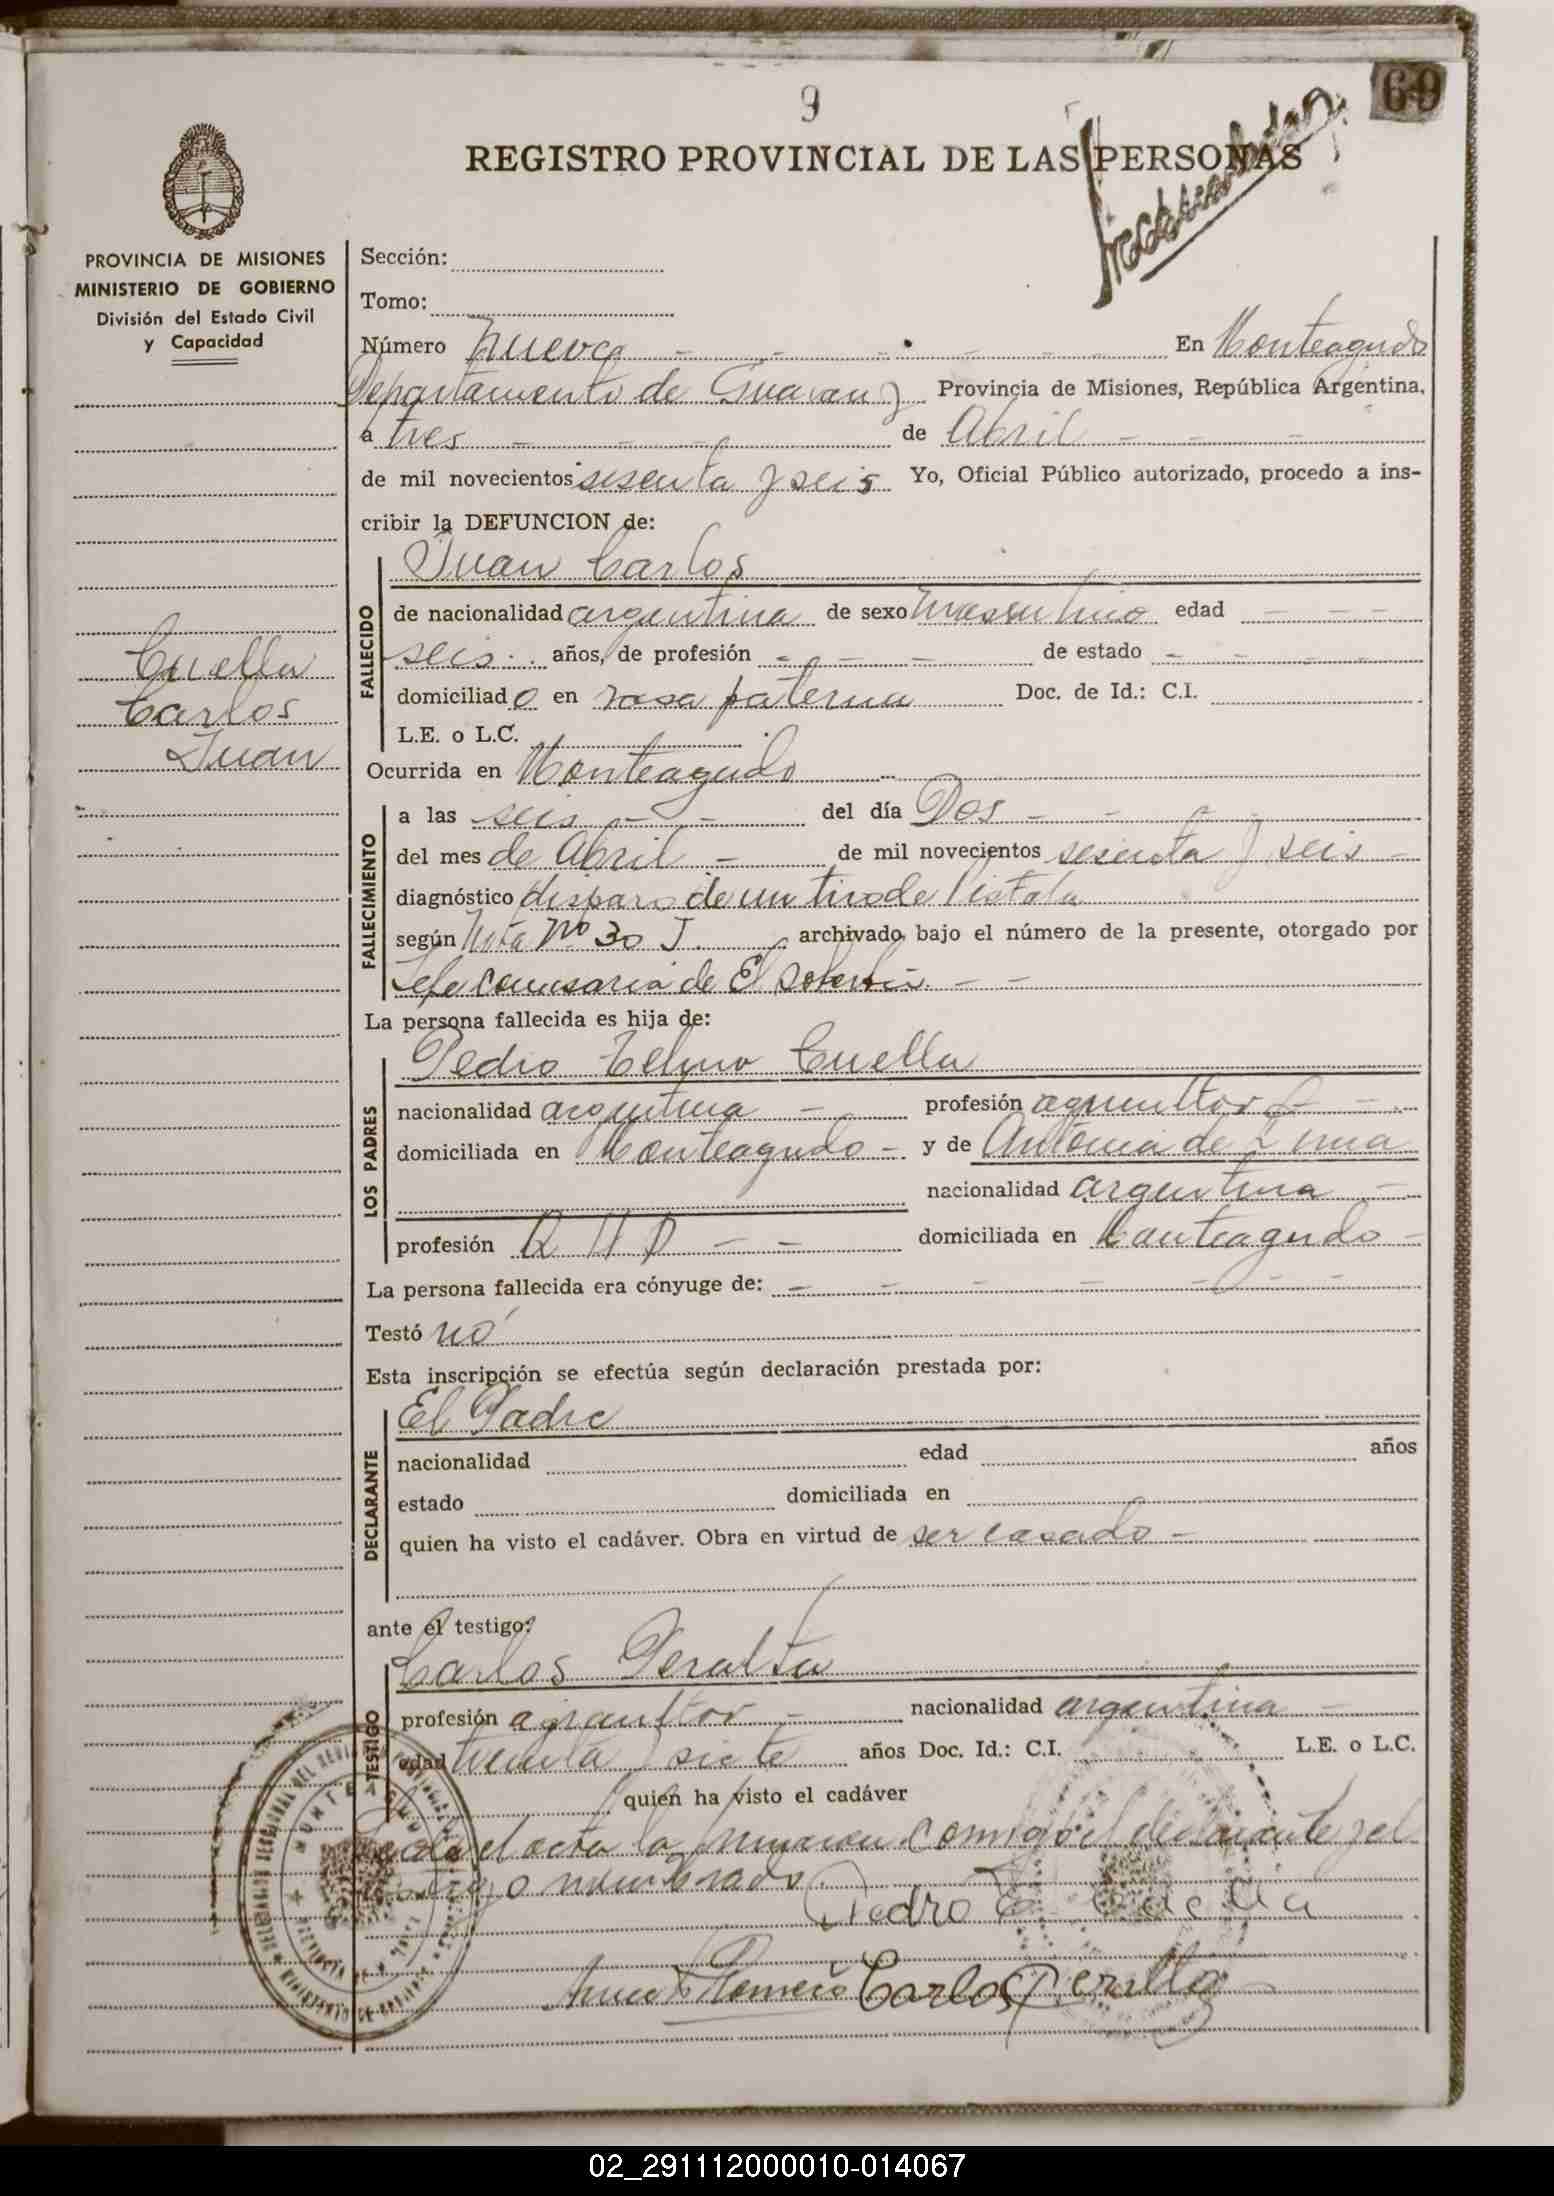 9
69
REGISTRO PROVINCIAL DE LAS PERSONAS
PROVINCIA DE MISIONES
MINISTERIO DE GOBIERNO
División del Estado Civil
y Capacidad
Cuella
Carlos
Juan
Sección:
Tomo:
Número nueve - - - - - En Monteagudo
Departamento de Guarany Provincia de Misiones, República Argentina,
a tres - - - de Abril - - -
de mil novecientos sesenta y seis Yo, Oficial Público autorizado, procedo a ins-
cribir la DEFUNCION de:
FALLECIDO
Juan Carlos
de nacionalidad argentina de sexo masculino edad - - -
seis años, de profesión - - - de estado - - - -
domiciliado en casa paterna Doc. de Id.: C.I.
L.E. o L.C.
Ocurrida en Monteagudo
FALLECIMIENTO
a las seis - - del día Dos - - - -
del mes de Abril - de mil novecientos sesenta y seis -
diagnóstico disparo de un tiro de Pistola
según Nota Nº 30 J. archivado bajo el número de la presente, otorgado por
Jefe comisaria de El Soberbio - -
La persona fallecida es hija de:
LOS PADRES
Pedro Telmo Cuella
nacionalidad argentina - profesión agricultor - -
domiciliada en Monteagudo - y de Antonia de Lima
nacionalidad argentina -
profesión Q H D - - domiciliada en Monteagudo -
La persona fallecida era cónyuge de: - - - - - - -
Testó nó
Esta inscripción se efectúa según declaración prestada por:
DECLARANTE
El Padre
nacionalidad edad años
estado domiciliada en
quien ha visto el cadáver. Obra en virtud de ser casado -
ante el testigo:
TESTIGO
Carlos Peralta
profesión agricultor - nacionalidad argentina -
edad treinta y siete años Doc. Id.: C.I. L.E. o L.C.
quien ha visto el cadáver
Leida el acta la firmaron conmigo el declarante y el
testigo nombrado
Pedro T. Cuella
Romero Carlos Peralta
02_291112000010-014067